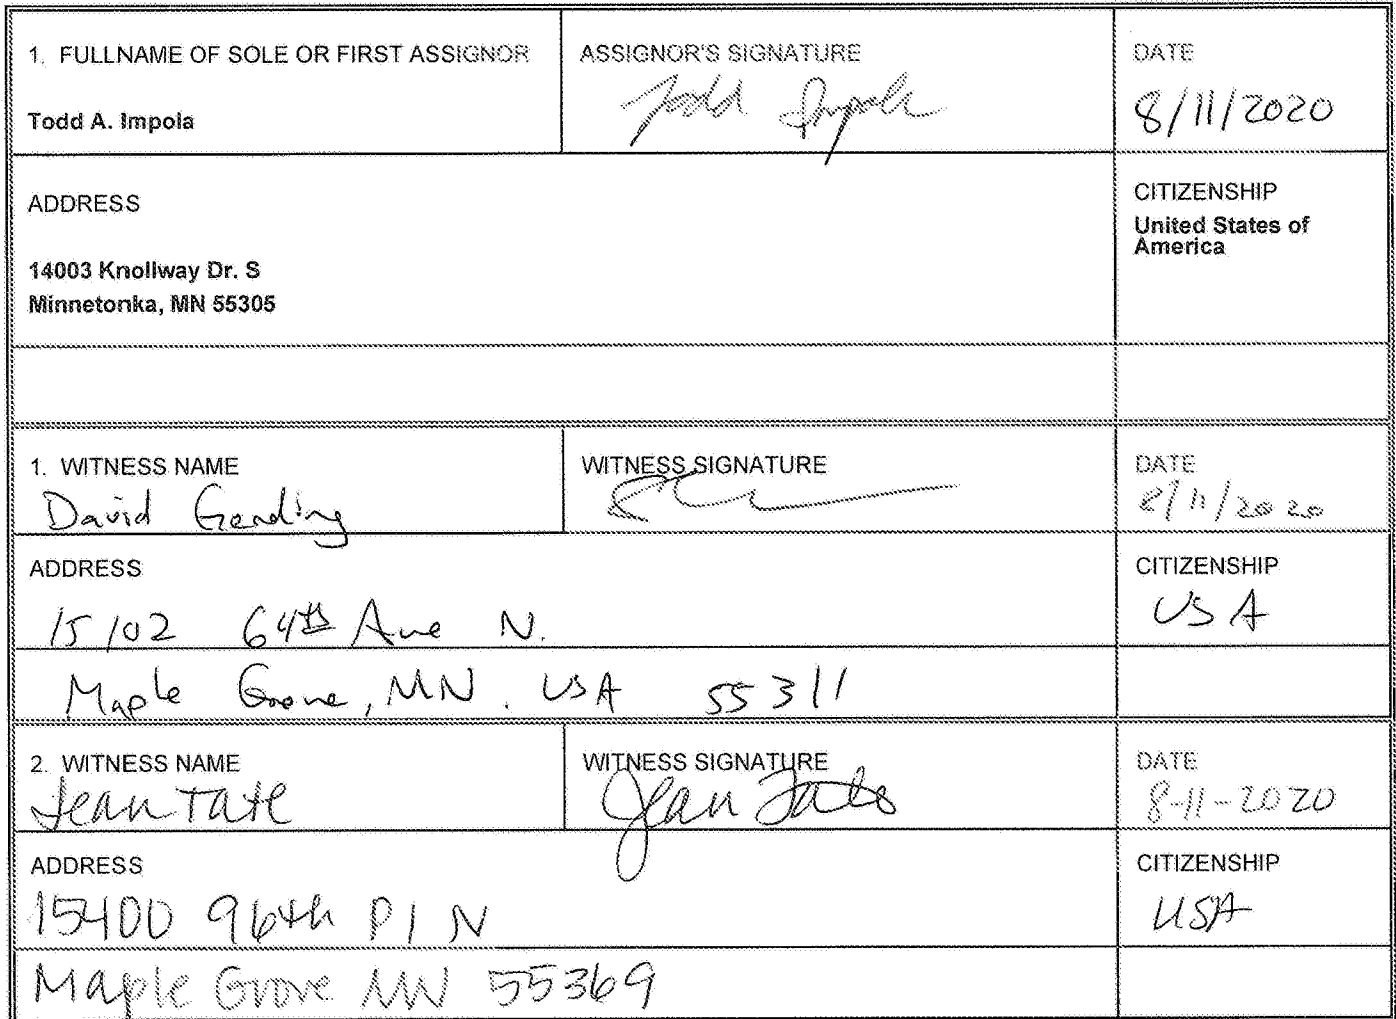 1. FULLNAME OF SOLE OR FIRST ASSIGNOR
Todd A. Impola
ASSIGNOR'S SIGNATURE
Todd Impola
DATE
8/11/2020
ADDRESS
14003 Knollway Dr. S
Minnetonka, MN 55305
CITIZENSHIP
United States of
America
1. WITNESS NAME
David
WITNESS SIGNATURE
DATE
8/11/2020
ADDRESS
15102 64th Ave N.
Maple Grove, MN. USA 55311
CITIZENSHIP
USA
2. WITNESS NAME
Jean Tate
WITNESS SIGNATURE
Jean Tate
DATE
8-11-2020
ADDRESS
15400 96th Pl N
Maple Grove MN 55369
CITIZENSHIP
USA